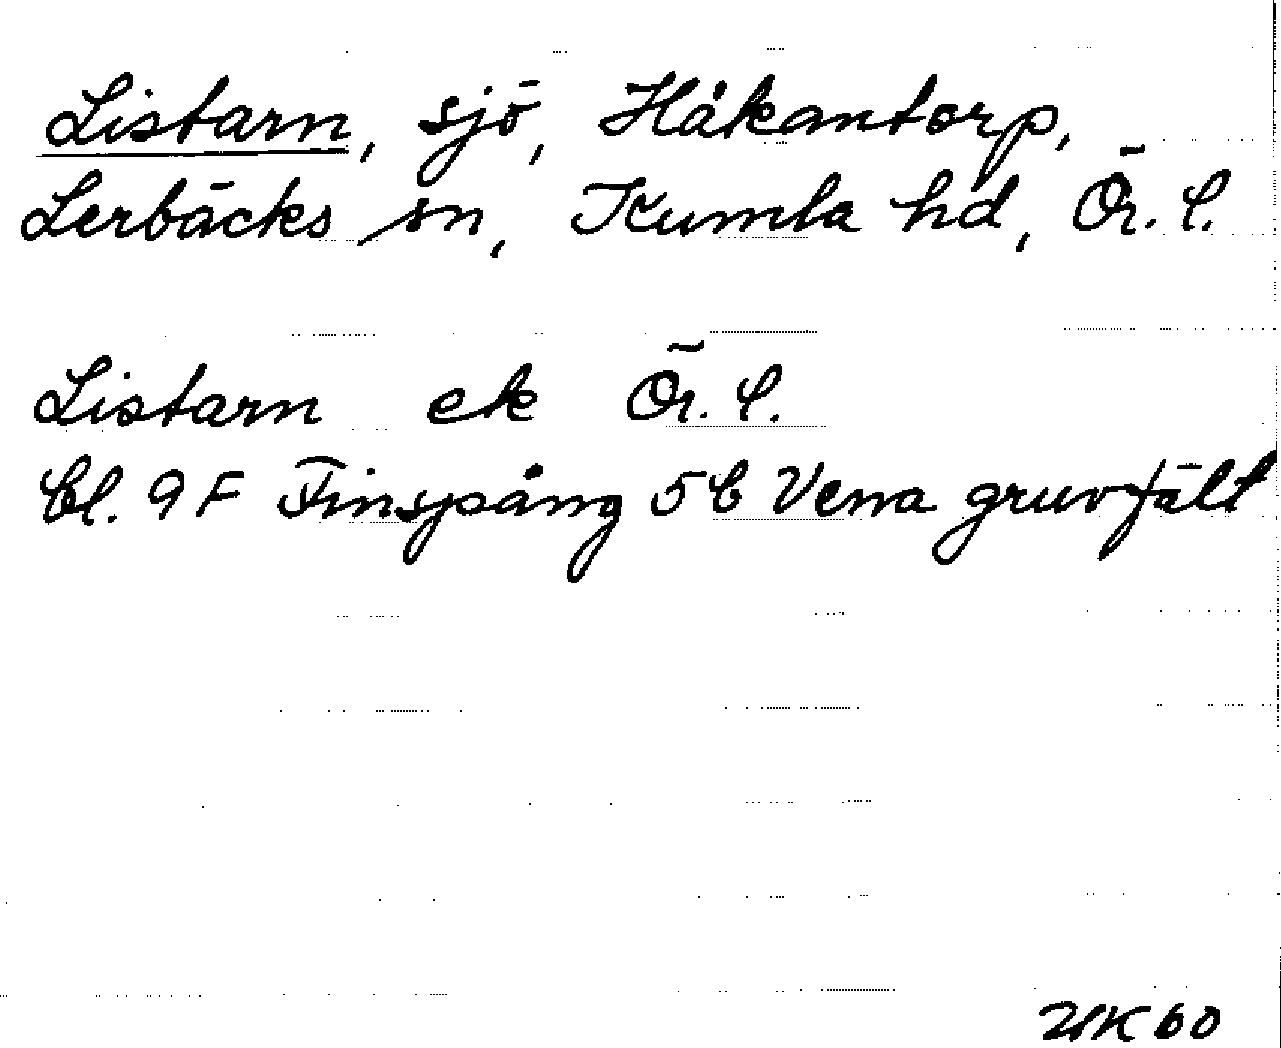 Listarn, sjö, Håkantorp,
Lerbäcks sn, Kumla hd, Ör. l.
Listarn ek Ör. l.
bl. 9 F Finspång 5 b Vena gruvfält
UK 60